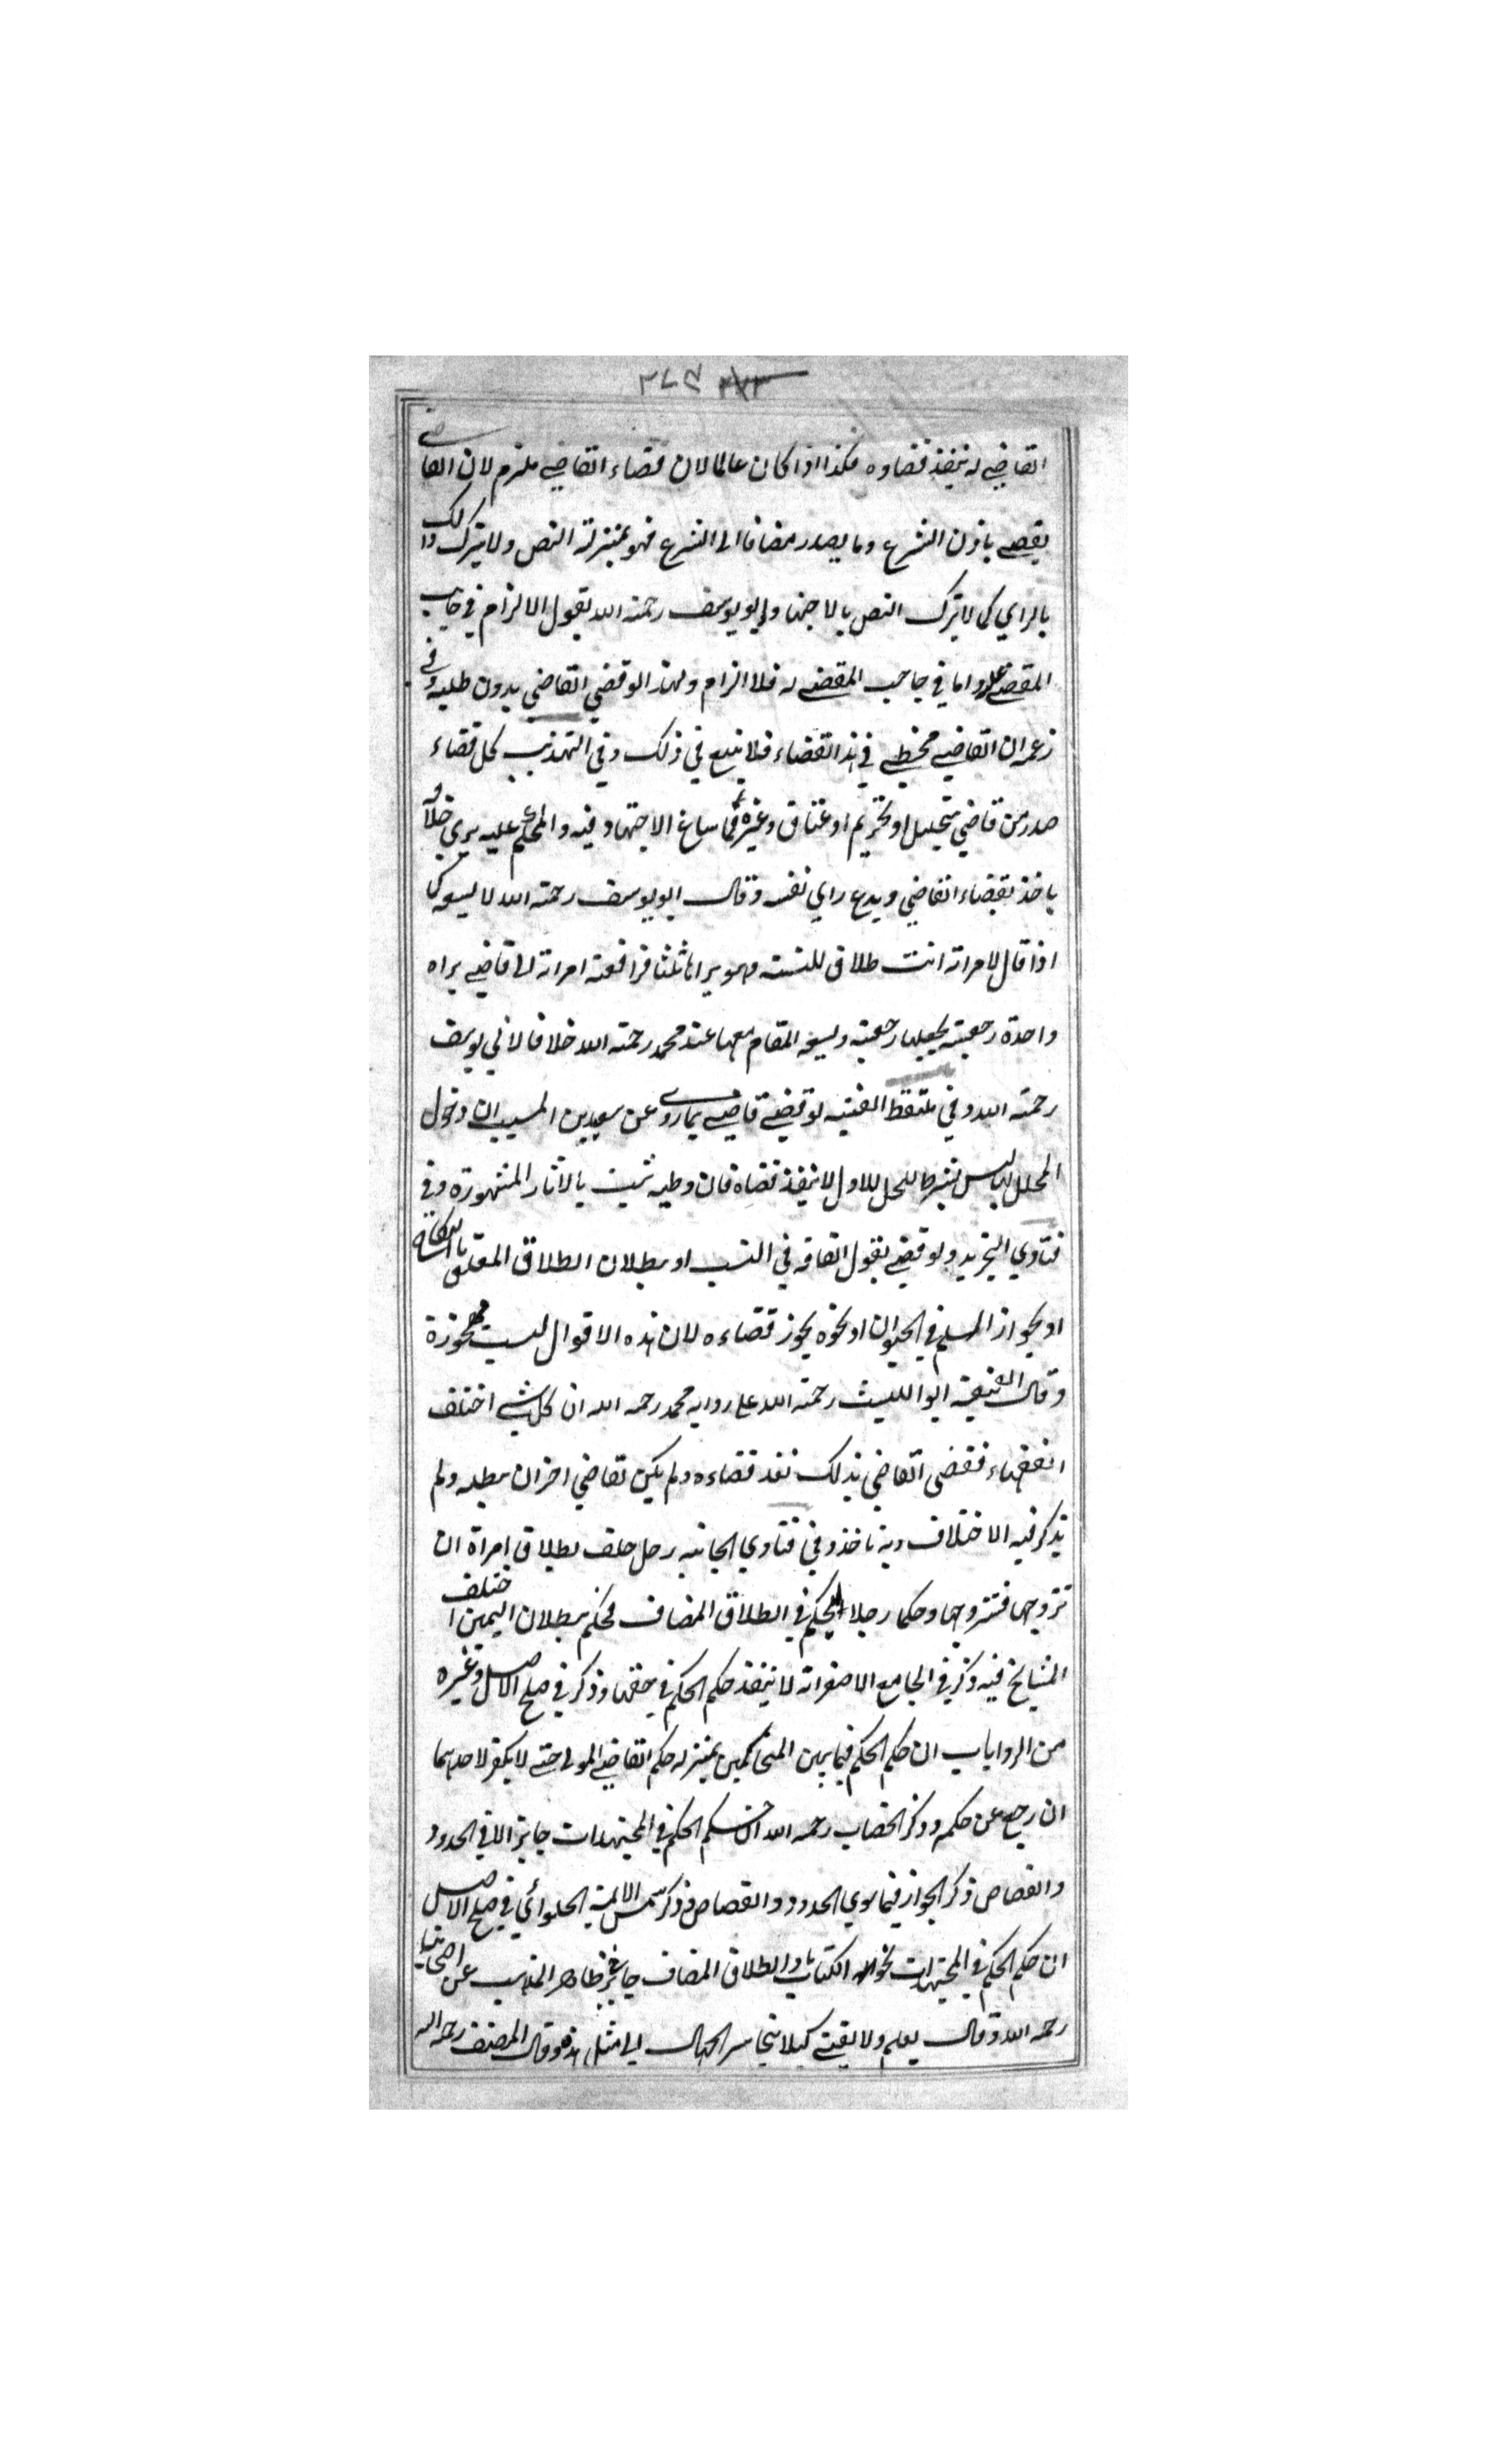 القاضي له ينفذ قضاوه فكذا اذا كان عالما لان قضاء القاضي ملزم لان القاضي
يقضي باذن الشرع وما يصدر مضافا الى الشرع فهو بمنزلة النص ولا يترك ذلك
بالراي كما لا يترك النص بالاجتهاد وابو يوسف رحمة الله يقول الالزام في جانب
المقضي عليه واما في جانب المقضي له فلا الزام ولهذا لو قضي القاضي بدون طلبه وفي
زعمه ان القاضي مخطي في هذا القضاء فلا يتبع في ذلك وفي التهذيب كل قضاء
صدر من قاضي بتحليل او تحريم او عتاق وغيره مما ساغ الاجتهاد فيه والمحكوم عليه يري خلافه
ياخذ بقضاء القاضي ويدع راي نفسه وقال ابو يوسف رحمة الله لا يسعه كما
اذا قال لامراته انت طلاق للسنة وهو يراها ثلثا فرافعته امراته الى قاضي يراه
واحدة رجعية يجعلها رجعية ويسعه المقام معها عند محمد رحمة الله خلافا لابي يوسف
رحمة الله وفي ملتقط الفتيه لو قضي قاضي بما روي عن سعيد بن المسيب ان دخول
المحلل بها ليس بشرط للحل للاول لا ينفذ قضاه فان وطيه ثبت بالاثار المشهورة وفي
فتاوي التجريد ولو قضي بقول القافه في النسب او ببطلان الطلاق المعلق بالنكاح
او بجواز السلم في الحيوان او نحوه يجوز قضاءه لان هذه الاقوال ليست مهجورة
وقال الفقيه ابو الليث رحمة الله على روايه محمد رحمه الله ان كل شي اختلف
الفقهاء فقضى القاضي بذلك نفذ قضاءه ولم يكن لقاضي اخر ان يبطله ولم
يذكر فيه الاختلاف وبه ناخذ وفي فتاوي الخانيه رجل حلف بطلاق امراة ان
تزوجها فتزوجها وحكما رجلا ليحكم في الطلاق المضاف فحكم ببطلان اليمين اختلف
المشايخ فيه ذكر في الجامع الاصغر انه لا ينفذ حكم الحكم في حقها وذكر في صلح الاصل وغيره
من الروايات ان حكم الحكم فيما بين المتحاكمين بمنزله حكم القاضي المولى حتى لا يكون لاحدهما
ان رجع عن حكمه وذكر الخصاف رحمه الله ان حكم الحكم في المجتهدات جايز الا في الحدود
والقصاص ذكر الجواز فيما سوي الحدود والقصاص وذكر شمس الائمة الحلوائي في صلح الاصل
ان حكم الحكم في المجتهدات نحو الكنايات والطلاق المضاف جايز في ظاهر المذهب عن اصحابنا
رحمه الله وقال يعلم ولا يفتي كيلا يتجاسر الجهال الى مثل هذه وقال المصنف رحمه الله